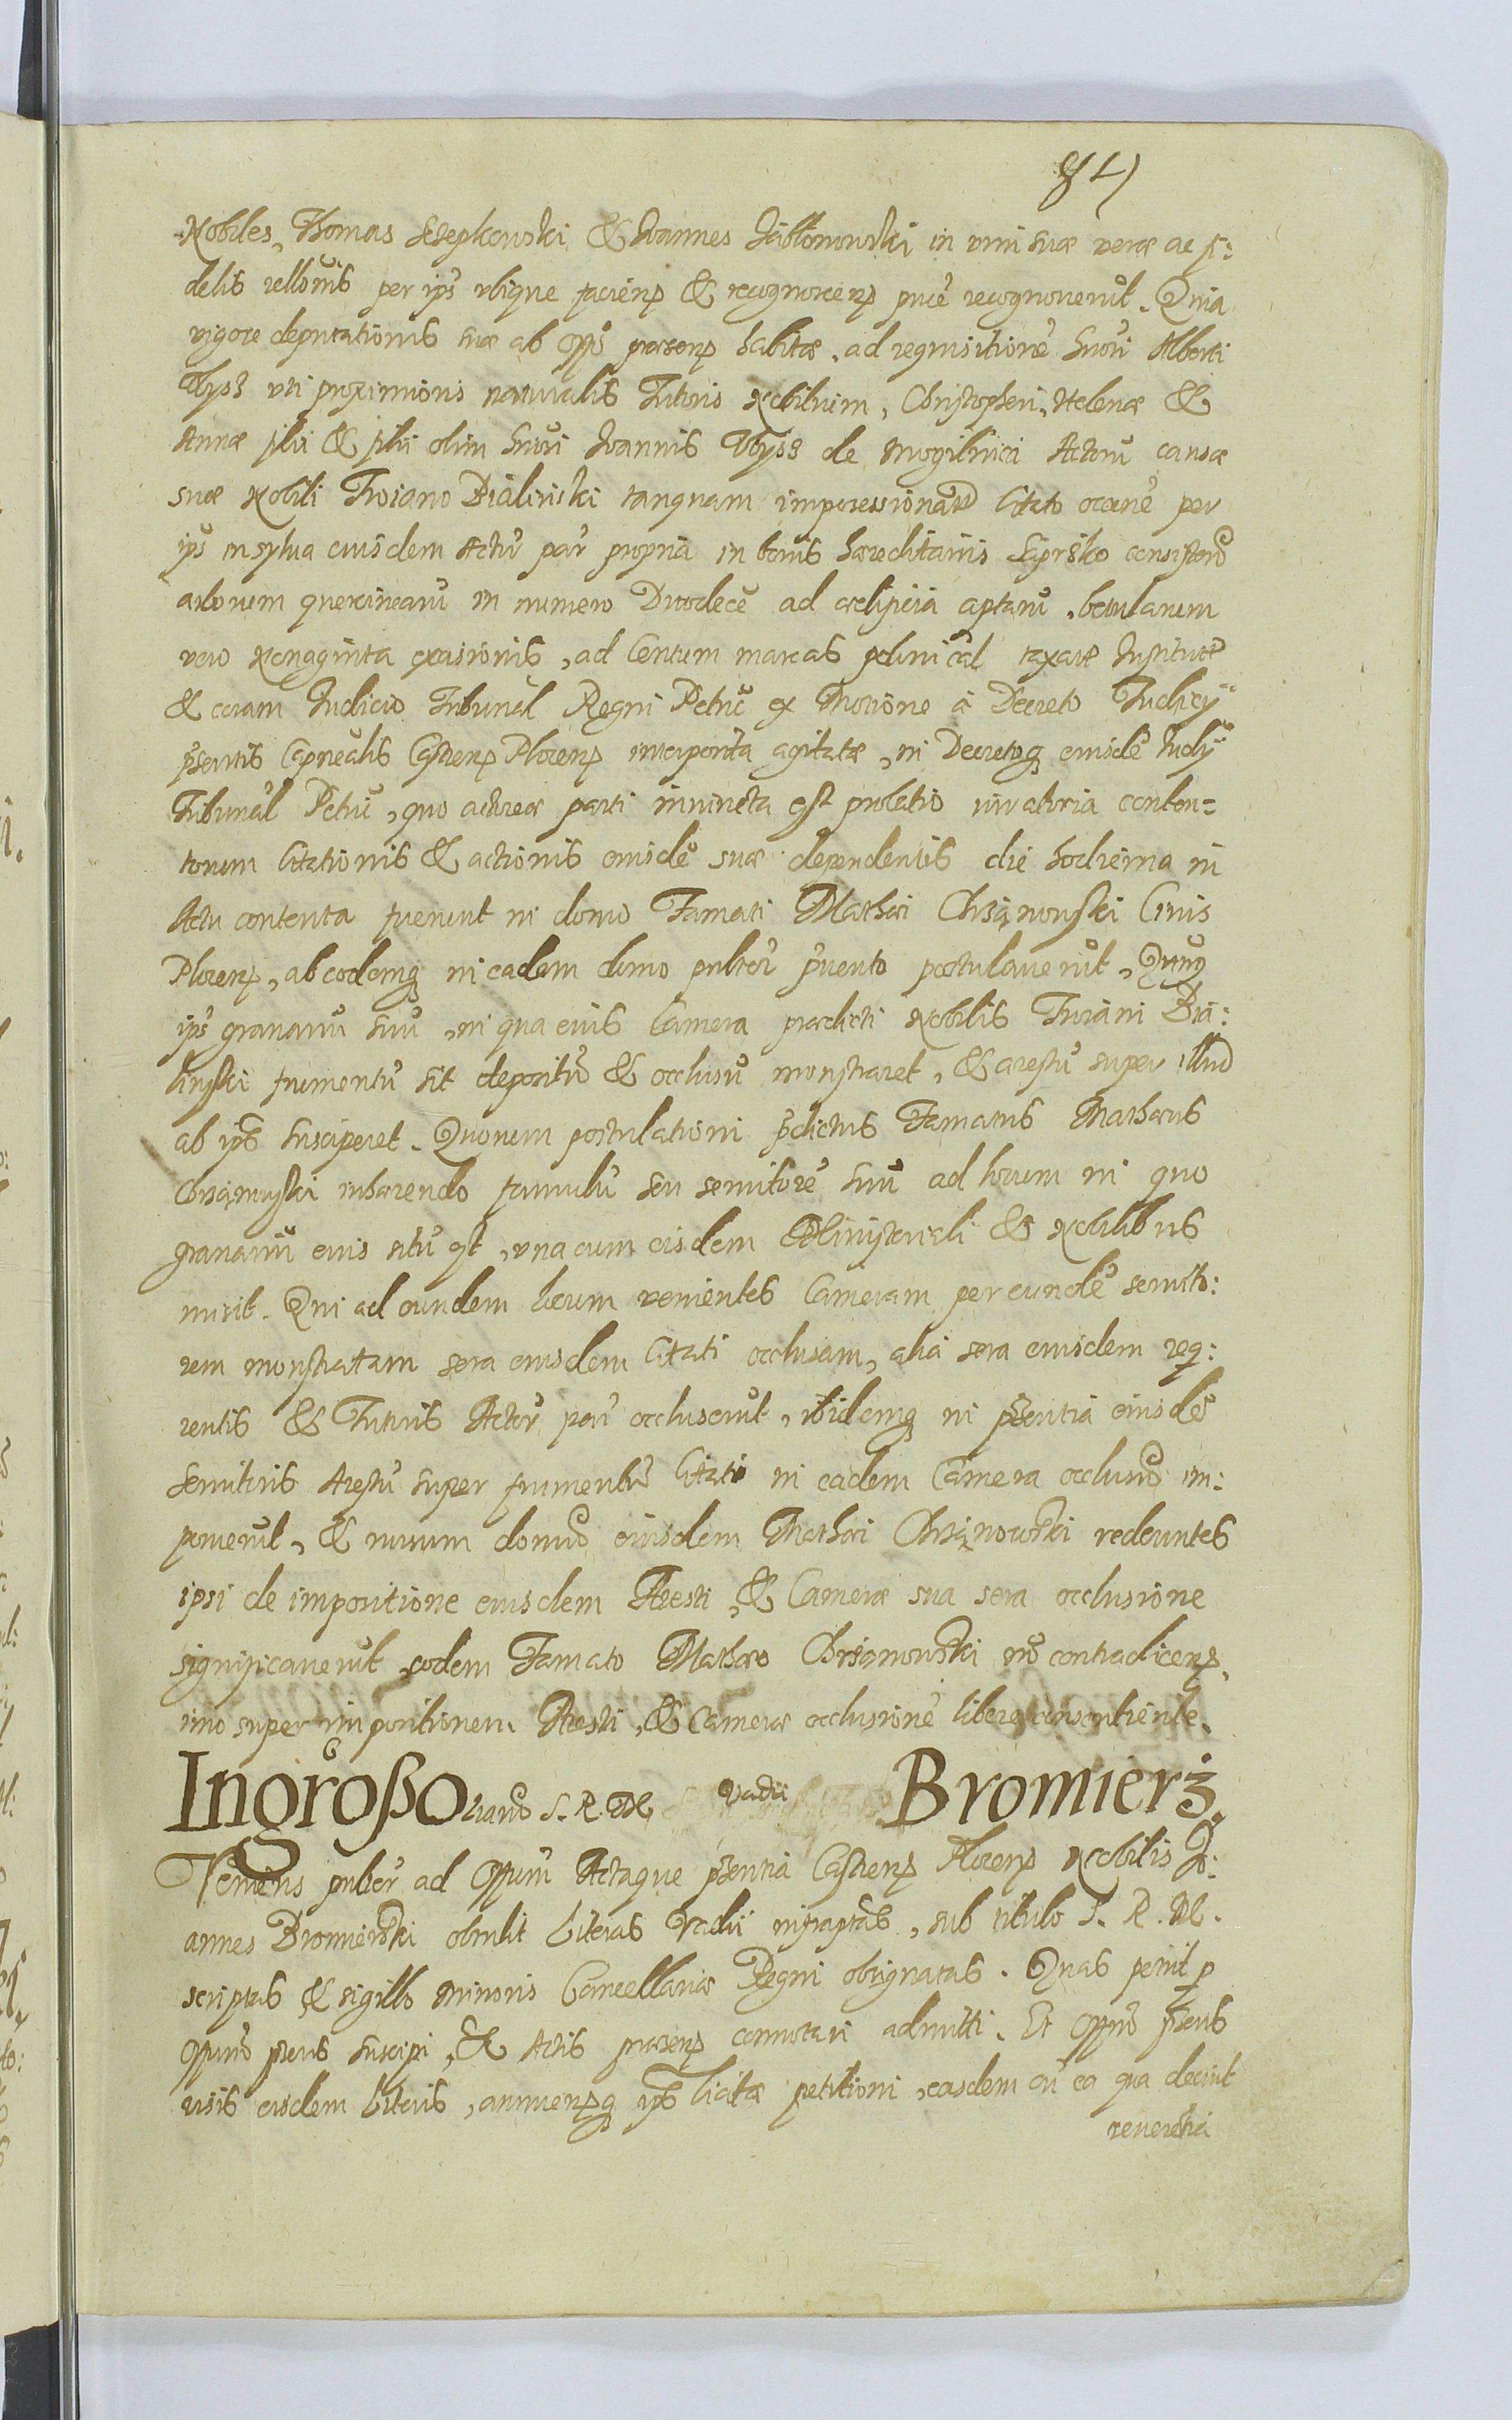 Nobiles, Thomas & Ioannes Iabłonowski in vim suæ veræ ac fi:
delis rellõnis per ip̃s vbique faciens & recognoscens pñcẽ recognouerũt. Quia
vigore deputationis suæ ab Off̃o præsens habitæ, ad requisitionẽ Alberti
vti proximioris naturalis Tutoris Nobilium, Christopheri, Helenæ &
Annæ & olim Ioannis de Mogilnica Actorũ causæ
suæ Nobili Troiano Bialinski tanquam impossessionatũ Citato per
ip̃s in sylua eiusdem Actor̃ par̃ propria in bonis hæreditariis consisten
arborum quercinearũ in numero Duodecẽ ad ædificia aptarũ, betularum
vero Nonaginta excisionis, ad Centum marcas taxatæ Institutæ
& coram Iudicio Tribunal Regni Petric̃ ex Motione à Decreto Iudicij
p̃sentis Castrens Plocens interposita agitatæ, in Decretoq; eiusdẽ Iudij
Tribunal Petric̃, quo actoreæ parti iniuncta est probatio iuratoria conten=
torum Citationis & actionis eiusdẽ suæ dependentis die hodierna in
Actu contenta fuerunt in domo Famati Mathæi Chrząnowski Ciuis
Plocens, ab eodemq; in eadem domo psnlter̃ p̃uento postulauerũt, Quo
ip̃s granariũ suũ, in qua eius Camera prædicti Nobilis Troiani Bia:
linski frumentũ sit depositũ & occlusũ monstraret, & arestũ super illud
ab ip̃s susciperet. Quorum postulationi p̃dictus Famatus Mathæus
Chrząnowski inhærendo famulũ seu seruitorẽ suũ ad locum in quo
granariũ eius situ est, vna cum eisdem Ministeriali & Nobilibus
misit. Qui ad eundem locum venientes Cameram per eundẽ seruito:
rem monstratam sera eiusdem Citati occlusam, alia sera eiusdem req̃:
rentis & Tutoris Actor̃ par̃ occluserũt, ibidemq; in p̃sentia eiusdẽ
seruitoris Arestũ super frumentũ Citati in eadem Camera occlusũ im:
posuerũt, & rursum domũ eiusdem Mathæi Chrząnowski redeuntes
ipsi de impositione eiusdem Aresti, & Cameræ sua sera occlusione
significauerũt, eodem Famato Mathæo Chrząnowski nõ contradicens,
imo super impositionem Aresti, & Cameræ occlusionẽ libere consentiente.
Ingroßo S. R. M. Vadii Bromierz.
Veniens psnlter̃ ad Off̃um Actaque p̃sentia Castrens Plocens Nobilis Jo:
annes Bromierski obtulit Literas Vadii infrap̃tas, sub titulo S. R. M.
scriptas & sigillo minoris Cancellariæ Regni obsignatas. Quas petiit p
Off̃um p̃sens suscipi, & Actis præsens connotari admitti. Et Off̃m p̃sens
visis eisdem Literis, annuensq; ip̃s licitæ petitioni, easdem cũ ea qua decuit
reuerẽtia